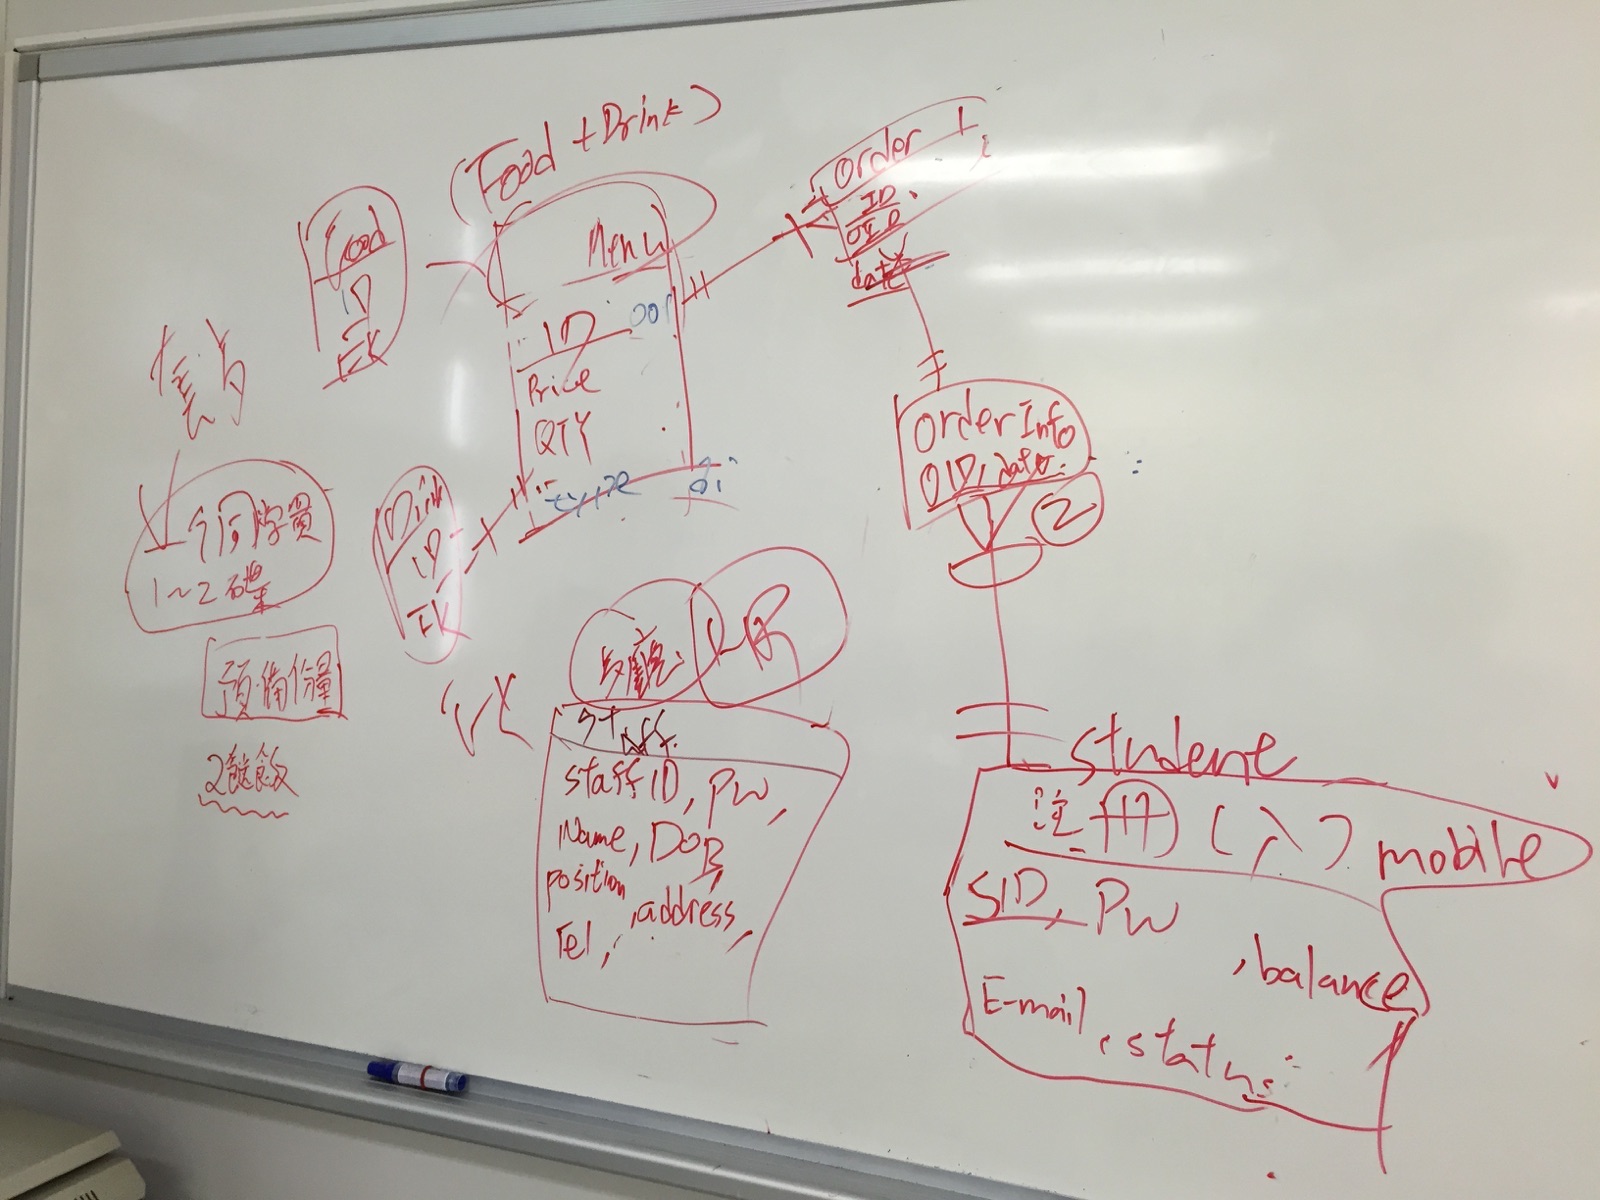 (Food + Drink)
Food
ID
FK
Menu
ID 001
Price
QTY
type
Order
ID
OID
date
OrderInfo
OID, date
2
Drink
ID
FK
1~2碟
預備份量
2餸飯
Staff
staff ID, PW,
Name, DOB,
position, address,
Tel,
student
注冊(入) mobile
SID, PW
, balance
E-mail, status